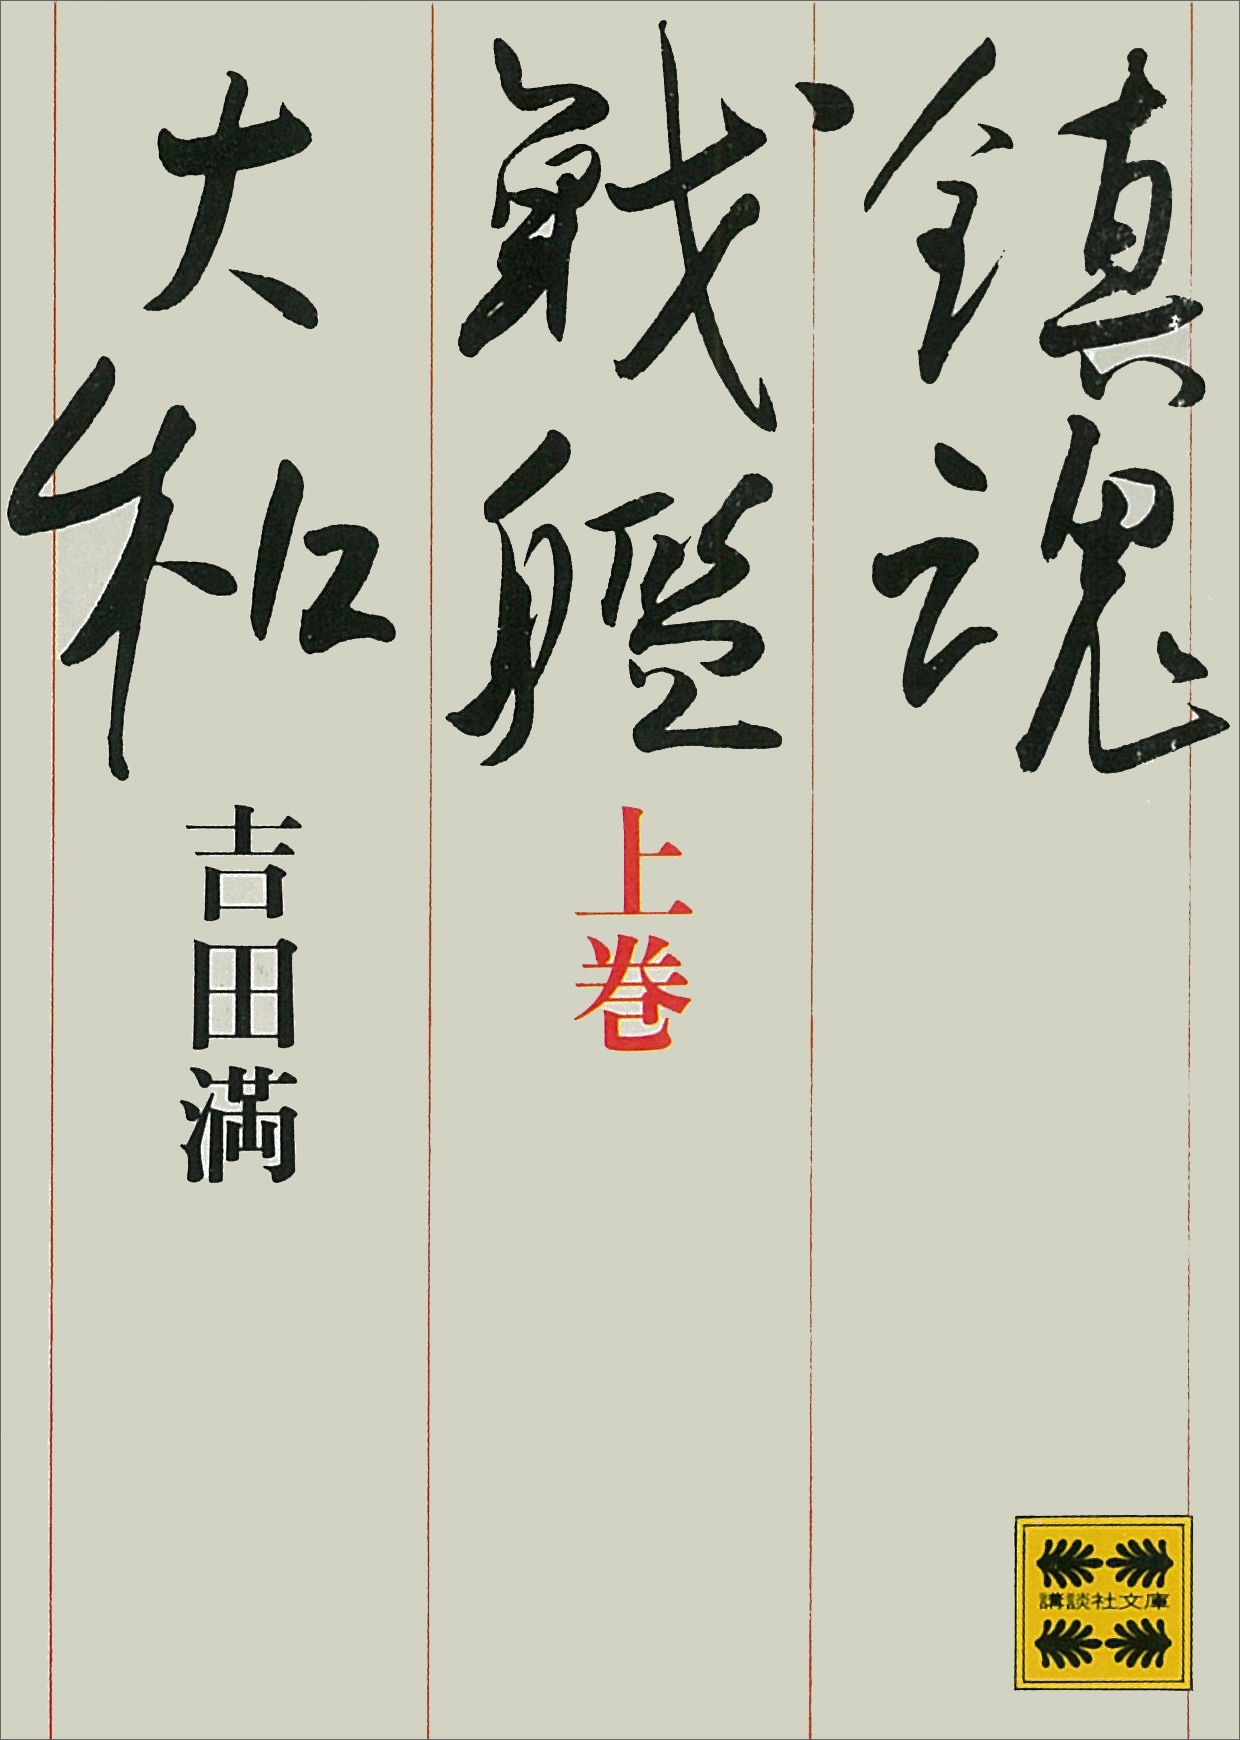 鎮魂
戦艦
大和
上巻
吉田満
講談社文庫